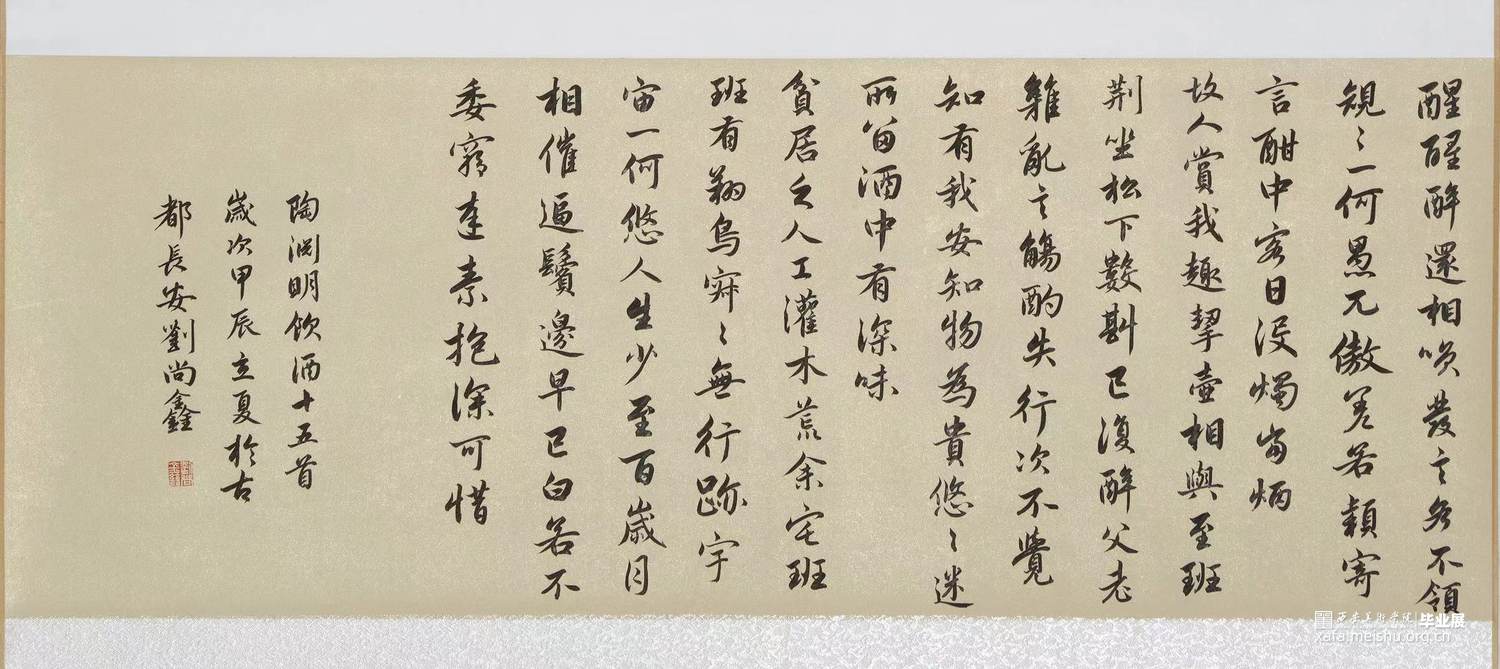 醒醒醉還相咲發言各不領
規〻一何愚兀傲差若穎寄
言酣中客日没燭當炳
故人賞我趣挈壺相與至班
荆坐松下數斟已復醉父老
雜亂言觴酌失行次不覺
知有我安知物為貴悠〻迷
所留酒中有深味
貧居乏人工灌木荒余宅班
班有翔鳥寂〻無行跡宇
宙一何悠人生少至百歲月
相催逼鬢邊早已白若不
委窮達素抱深可惜
陶淵明飲酒十五首
歲次甲辰立夏於古
都長安劉尚鑫
西安美术学院 毕业展
xafa.meishu.org.cn